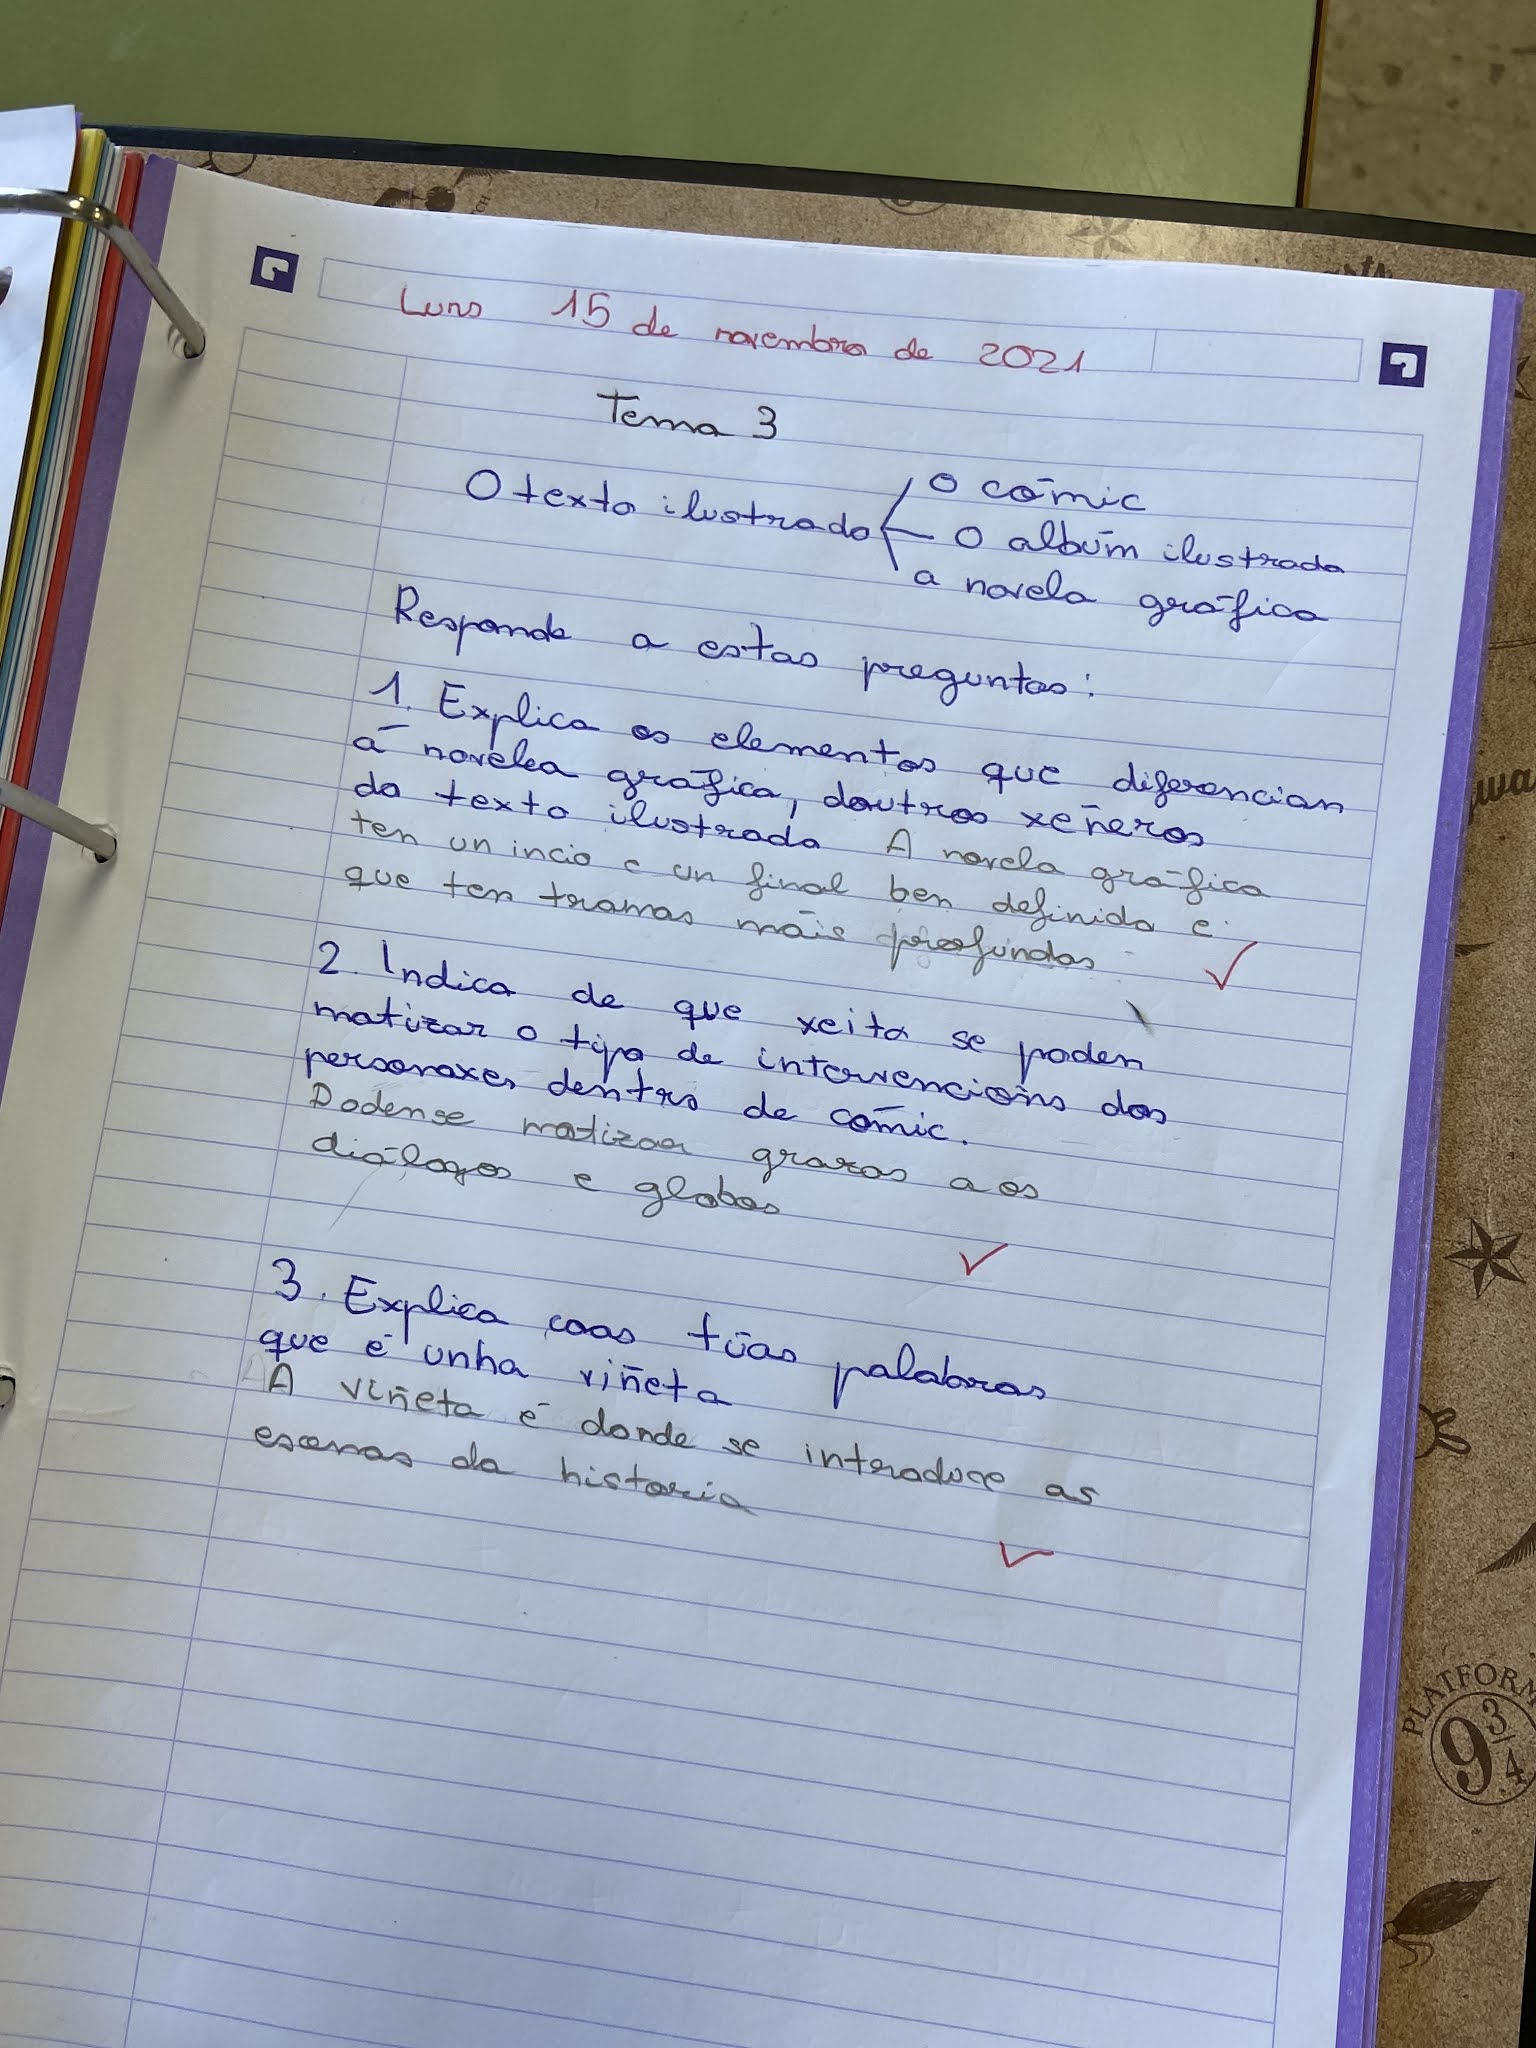 Luns 15 de novembro de 2021
Tema 3
O texto ilustrado
o cómic
o albúm ilustrado
a novela gráfica
Responde a estas preguntas:
1. Explica os elementos que diferencian
á novelea gráfica, doutros xéñeros
do texto ilustrado A novela gráfica
ten un incio e un final ben definido e
que ten tramas máis profundas
2. Indica de que xeito se poden
matizar o tipo de intervencións dos
personaxes dentro de cómic.
Pódense matizar grazas aos
diálogos e globos
3. Explica coas túas palabras
que é unha viñeta
A viñeta é donde se introduce as
escenas da historia
PLATFORM
9 3/4